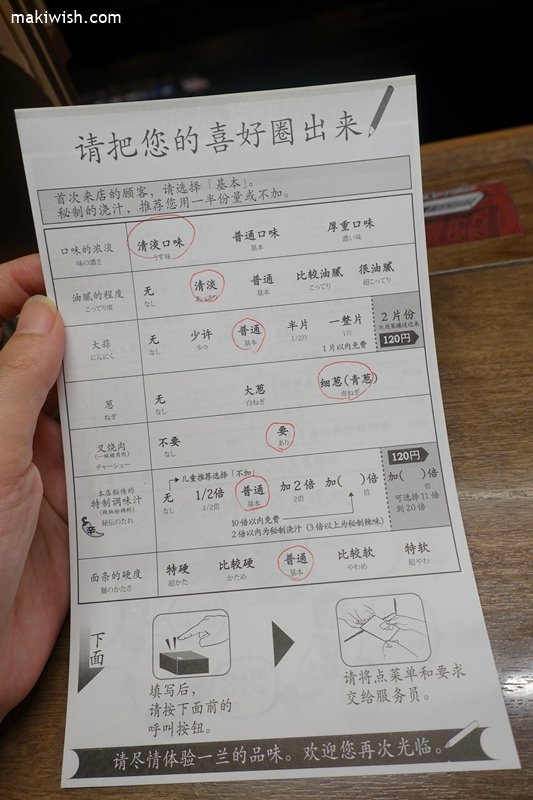 makiwish.com
请把您的喜好圈出来
首次来店的顾客，请选择「基本」。
秘制的浇汁，推荐您用一半份量或不加。
口味的浓淡 清淡口味 普通口味 厚重口味
味の濃さ うす味 基本 濃い味
油腻的程度 无 清淡 普通 比较油腻 很油腻
こってり度 なし あっさり 基本 こってり 超こってり
大蒜 无 少许 普通 半片 一整片 2片份
にんにく なし 少々 基本 1/2片 1片
1片以内免费 120円
葱 无 大葱 细葱(青葱)
ねぎ なし 白ねぎ 青ねぎ
叉烧肉 不要 要
チャーシュー なし あり
儿童推荐选择「不加」 120円
本店秘传的
特制调味汁 无 1/2倍 普通 加2倍 加( )倍 加( )倍
(辣椒粉调料) なし 1/2倍 基本 2倍 倍 倍
辛 秘伝のたれ
10倍以内免费 可选择11倍
2倍以内为秘制浇汁(3倍以上为秘制辣味) 到20倍
面条的硬度 特硬 比较硬 普通 比较软 特软
麺のかたさ 超かた かため 基本 やわめ 超やわ
下面
填写后，
请按下面前的
呼叫按钮。
请将点菜单和要求
交给服务员。
请尽情体验一兰的品味。欢迎您再次光临。